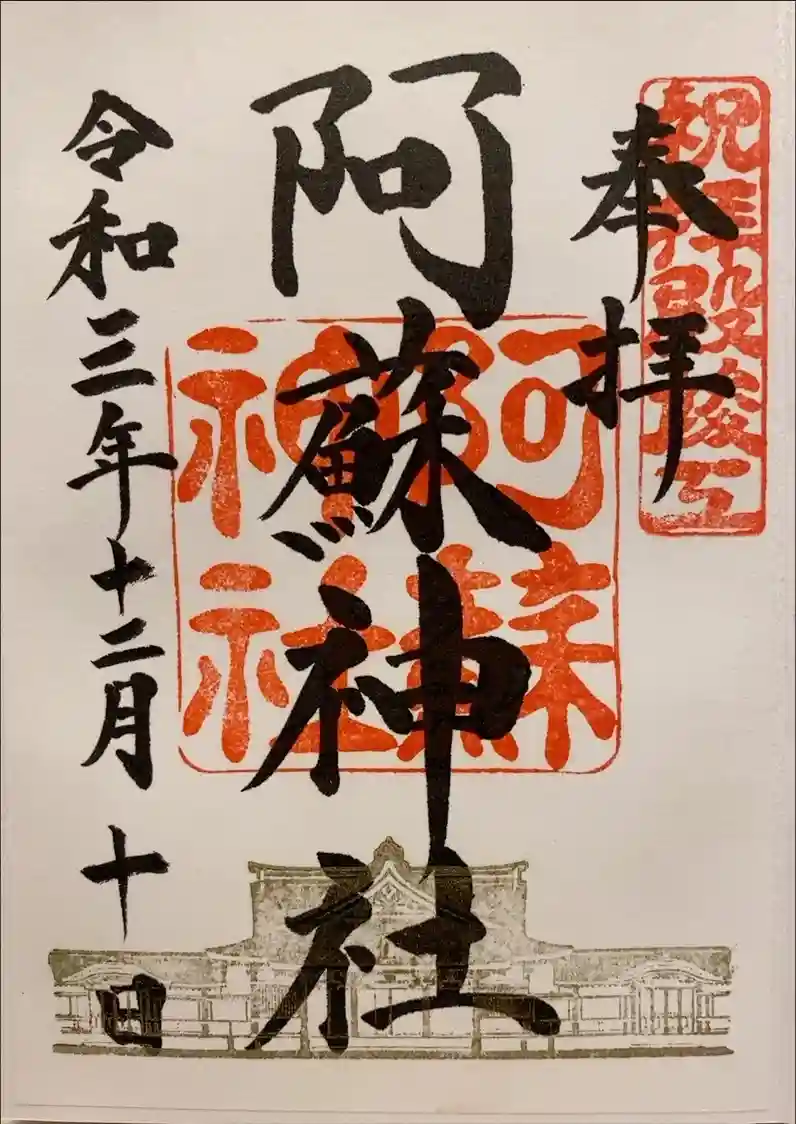 祝拝殿竣工
奉拝
阿蘇神社
阿蘇
神社
令和三年十二月十日